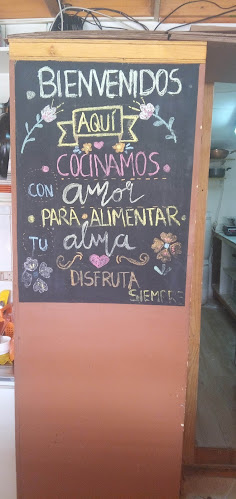 BIENVENIDOS
AQUÍ
COCINAMOS
CON amor
PARA ALIMENTAR
TU alma
DISFRUTA
SIEMPRE